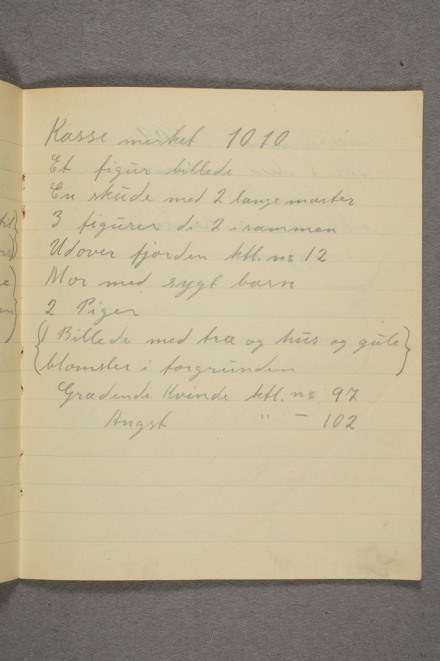 Kasse merket 1010
Et figur billede
En skude med 2 lange master
3 figurer di 2 i rammen
Udover fjorden ktl. nr 12
Mor med sygt barn
2 Piger
(1 Billede med træ og hus og gule)
(blomster i forgrunden)
Grædende Kvinde ktl. nr 97
Angst " – 102